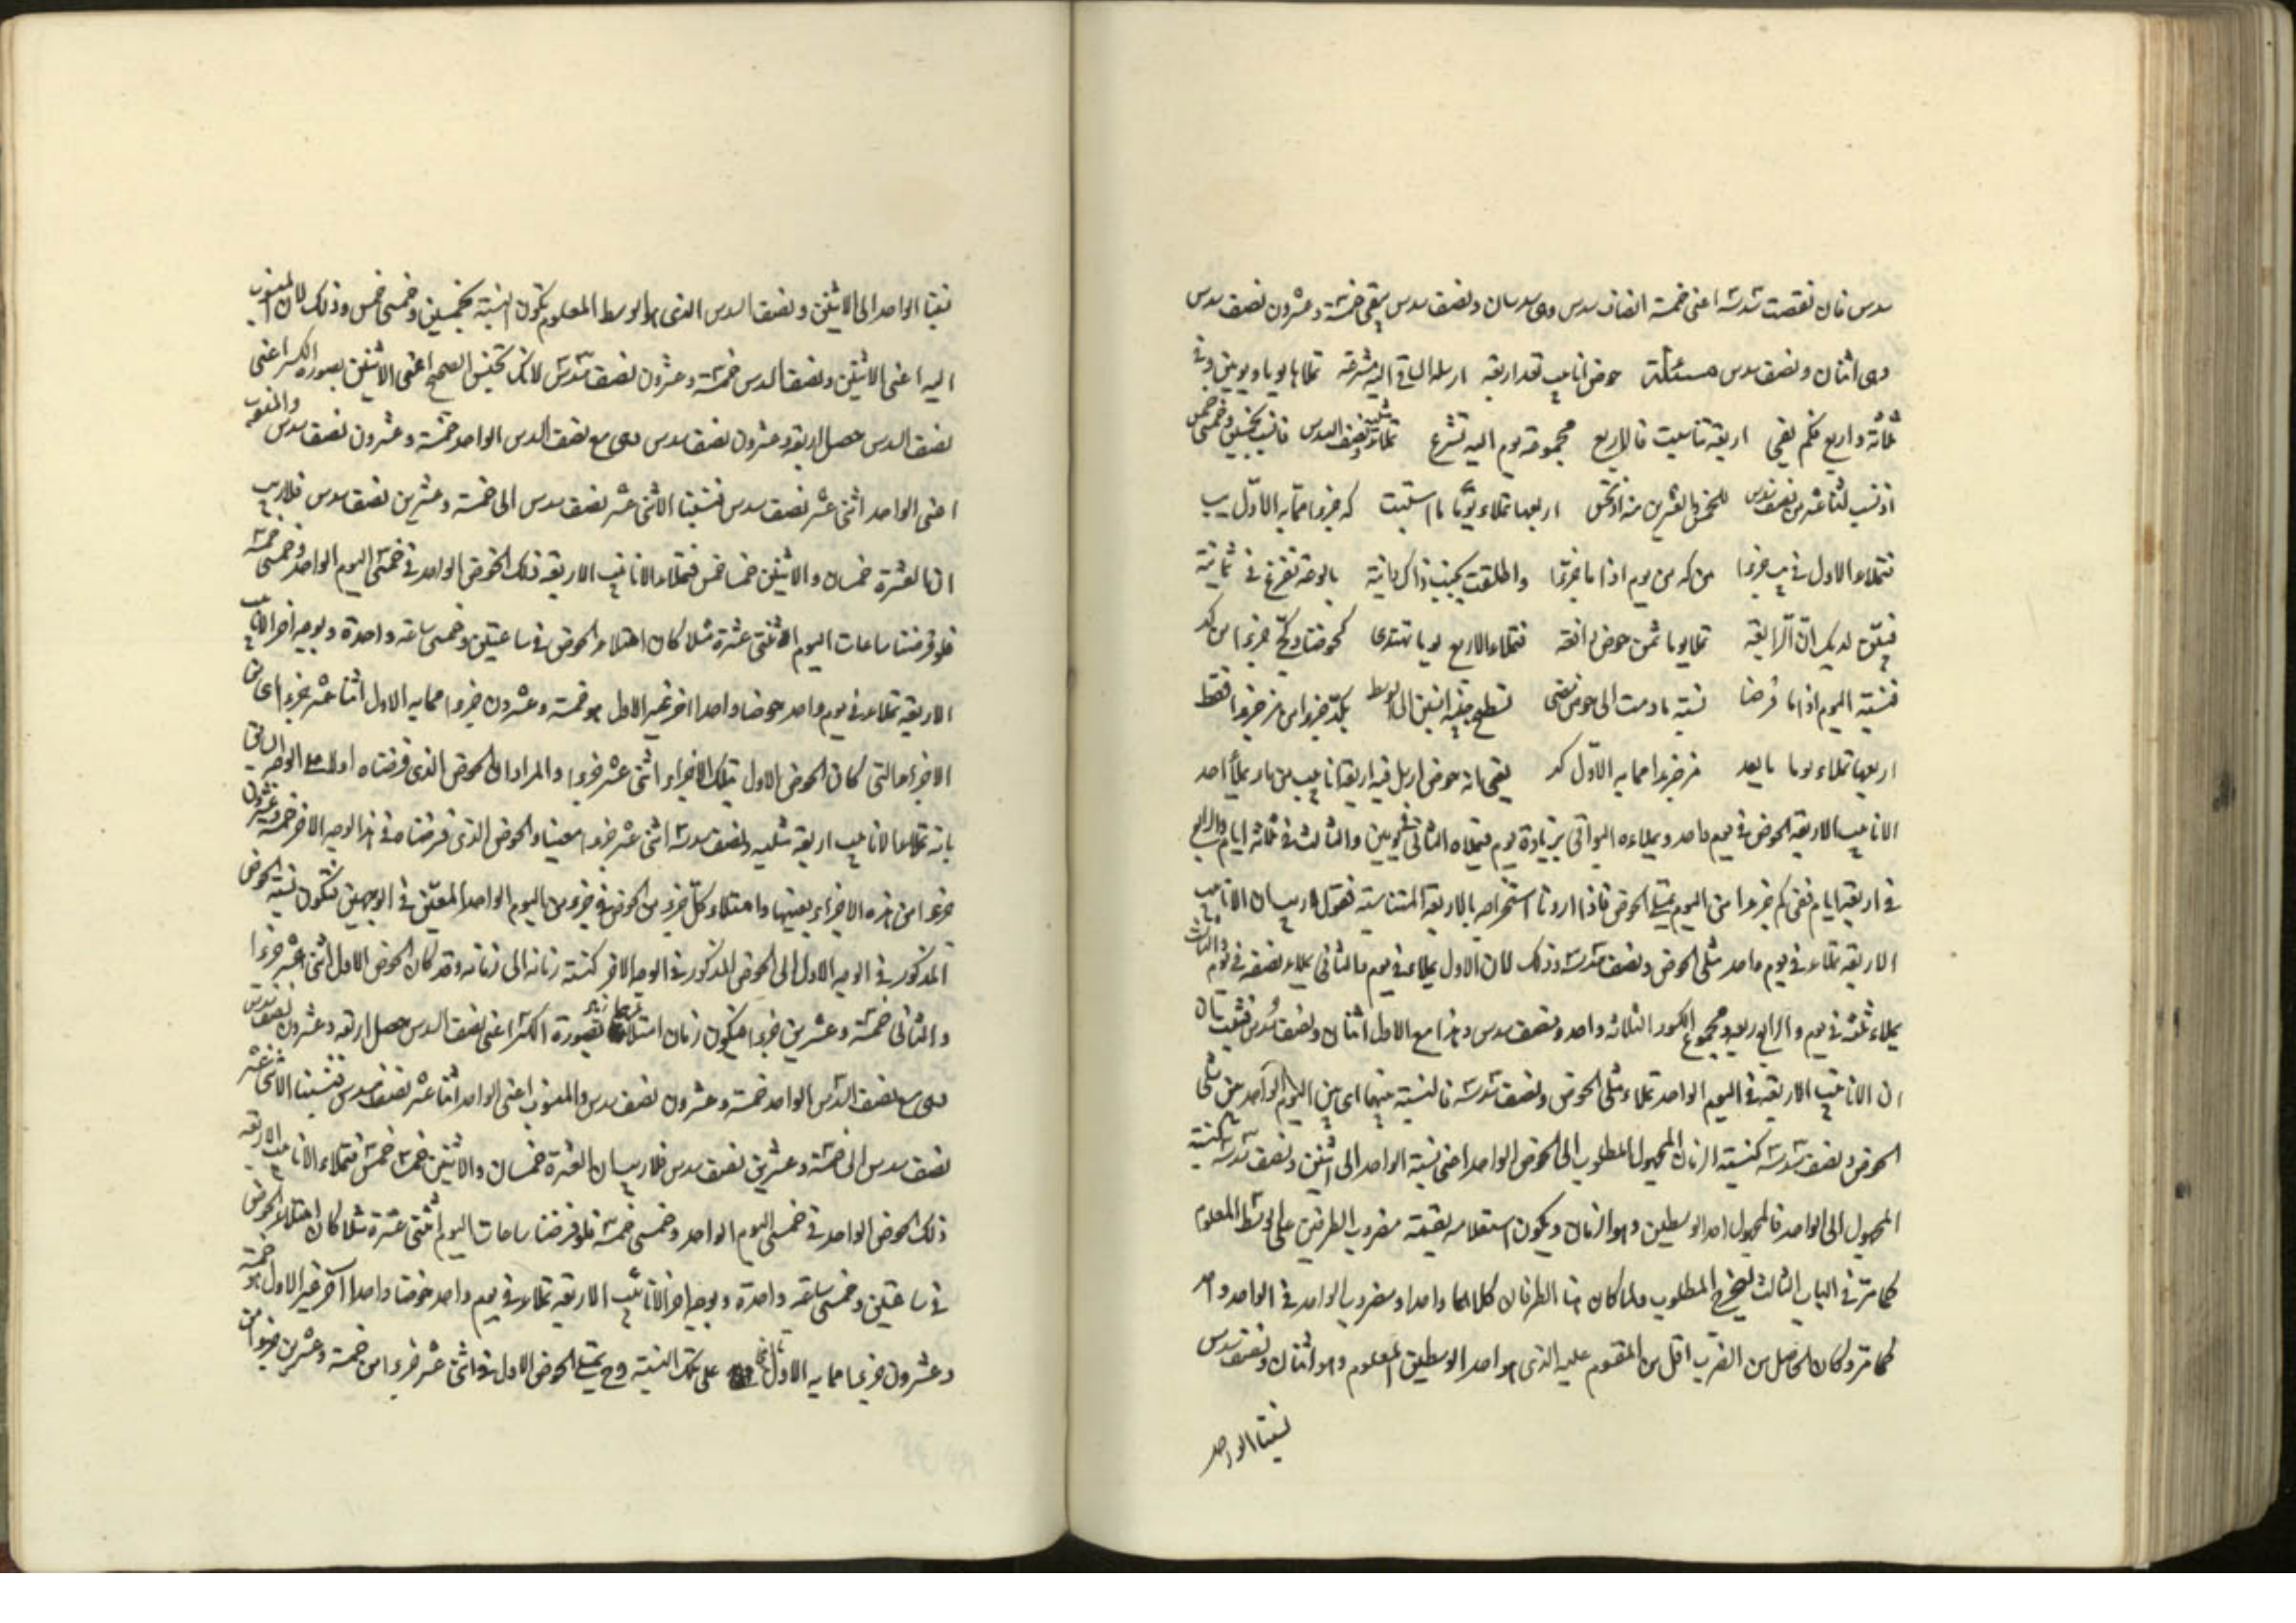 سدس فان نقصت سدسه اعنى خمسة انصاف سدس وهى سدسان ونصف سدس يبقى خمسة وعشرون نصف سدس
وهى اثنان ونصف سدس مسئلة حوض انابيب قد اربعة ارسله الساقى اليه مشرعة تملأها يوما ويومين وفى
ثلثة واربع فكم يفى اربعة تناسبت فالاربع مجموعة يوم اليه تشرع تملأ مثليه ونصف السدس فانسب بخمسين وخمسى خمس
اذ نسب اثنا عشر من نصف سدس للخمس والعشرين منه اربعها تملاء يوما كه جزوا مما به الاول يب
فتملاء الاول فى يب جزوا من كه من يوم اذا ما جزوا واطلقت بالوعة تفرغ فى ثمانية
تملا يوما ثمن حوض فتملاء الاربع يوما كحوضنا جزوا من كد
فنسبة اليوم اذا ما فرضا نسبة ما دمت الى حوض الوسط جزوا فقط
اربعها تملاء يوما جزوا مما به الاول كد يعنى انه حوض ارسل فيه اربعة انابيب من ماء يملأ احد
الانابيب الاربعة الحوض فى يوم واحد ويملاءه البواقى بزيادة يوم فيملأه الثانى فى يومين والثالث فى ثلثة ايام والرابع
فى اربعة ايام ففى كم جزءا من اليوم يمتلى الحوض فاذا اردنا استخراجه بالاربعة المتناسبة فنقول لاريب ان الانابيب
الاربعة تملاء فى يوم واحد مثلى الحوض ونصف سدسه وذلك لان الاول يملاء فى يوم والثانى يملاء نصفه فى يوم والثالث
يملاء ثلثه فى يوم والرابع ربعه ومجموع الكسور الثلاثة واحد ونصف سدس وهذا مع الاول اثنان ونصف سدس فثبت بان
ان الانابيب الاربعة فى اليوم الواحد تملاء مثلى الحوض ونصف سدسه فالنسبة بينهما اى بين اليوم الواحد وبين مثلى
الحوض ونصف سدسه كنسبة الزمان المجهول المطلوب الى الحوض الواحد اعنى نسبة الواحد الى اثنين ونصف سدسه كنسبة
المجهول الى الواحد فالمجهول احد الوسطين وهو الزمان ويكون استعلامه بقسمة مضروب الطرفين على الوسط المعلوم
كما مر فى الباب الثالث ليخرج المطلوب ولما كان هنا الطرفان كلاهما واحدا ومضروب الواحد فى الواحد واحد
كما مر وكان الحاصل من الضرب اقل من المقسوم عليه الذى هو احد الوسطين المعلوم وهو اثنان ونصف سدس
نسبنا الواحد
نسبنا الواحد الى الاثنين ونصف السدس الذى هو الوسط المعلوم تكون النسبة بخمسين وخمسى خمس وذلك لان المنسوب
اليه اعنى الاثنين ونصف السدس خمسة وعشرون نصف سدس لانك تجنس الصحيح اعنى الاثنين بصورة الكسر اعنى
نصف السدس حصل اربعة وعشرون نصف سدس وهى مع نصف السدس الواحد خمسة وعشرون نصف سدس والمنسوب
اعنى الواحد اثنى عشر نصف سدس فنسبنا الاثنى عشر نصف سدس الى خمسة وعشرين نصف سدس فلاريب
ان العشرة خمسان والاثنين خمسا خمس فتملاء الانابيب الاربعة ذلك الحوض الواحد فى خمسى اليوم الواحد وخمسى خمسه
فلو فرضنا ساعات اليوم اثنتى عشرة مثلا كان امتلاء الحوض فى ساعتين وخمسى ساعة واحدة وبوجه اخر الانابيب
الاربعة تملاء فى يوم واحد حوضا واحدا اخر غير الاول هو خمسة وعشرون جزوا مما به الاول اثنا عشر جزوا اى من
الاجزاء التى كان الحوض الاول بتلك الاجزاء اثنى عشر جزوا والمراد ان الحوض الذى فرضناه اولا فى الوجه السابق
بانه تملاء الانابيب اربعة مثليه ونصف سدسه اثنى عشر جزوا معينا والحوض الذى فرضناه فى هذا الوجه الاخر خمسة وعشرون
جزوا من هذه الاجزاء بعينها وامتلاء كل جزء من الحوض فى جزء من اليوم الواحد المعين فى الوجهين فتكون نسبة الحوض
المذكور فى الوجه الاول الى الحوض المذكور فى الوجه الاخر كنسبة زمانه الى زمانه وقد كان الحوض الاول اثنى عشر جزوا
والثانى خمسة وعشرين جزوا فيكون زمان امتلاء بصورة الكسر اعنى نصف السدس حصل اربعة وعشرون نصف سدس
وهى مع نصف السدس الواحد خمسة وعشرون نصف سدس والمنسوب اعنى الواحد اثنا عشر نصف سدس فنسبنا الاثنى عشر
نصف سدس الى خمسة وعشرين نصف سدس فلاريب ان العشرة خمسان والاثنين خمسا خمس فتملاء الانابيب الاربعة
ذلك الحوض الواحد فى خمسى اليوم الواحد وخمسى خمسه فلو فرضنا ساعات اليوم اثنتى عشرة مثلا كان امتلاء الحوض
فى ساعتين وخمسى ساعة واحدة وبوجه اخر الانابيب الاربعة تملاء فى يوم واحد حوضا واحدا آخر غير الاول هو خمسة
وعشرون جزوا مما به الاول على تلك النسبة وح يمتلى الحوض الاول فى اثنى عشر جزوا من خمسة وعشرين جزوا من